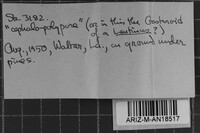 Sta. 3182.
"cephalo-polypora" (or is this the Gastroid
of a Lentinus?)
Aug., 1950, Walker, La., on ground under
pines.
ARIZ-M-AN18517